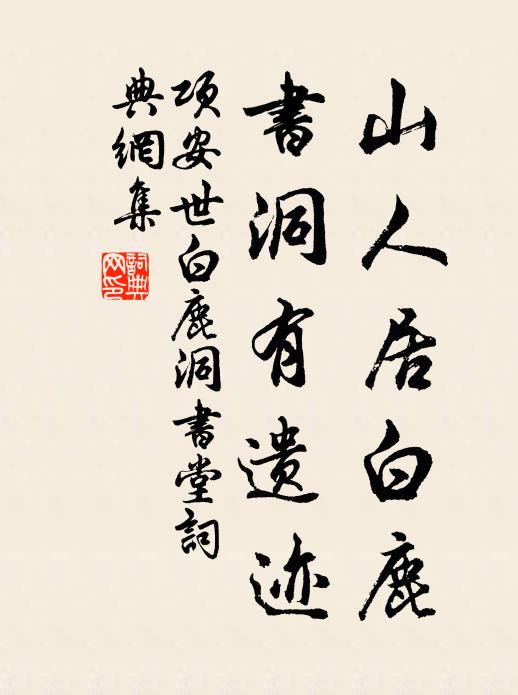 山人居白鹿
書洞有遺迹
項安世白鹿洞書堂詞
典網集
詞典网印